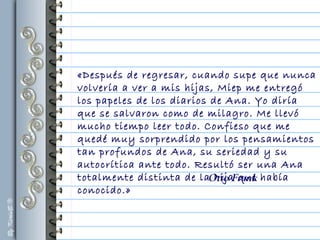 «Después de regresar, cuando supe que nunca
volvería a ver a mis hijas, Miep me entregó
los papeles de los diarios de Ana. Yo diría
que se salvaron como de milagro. Me llevó
mucho tiempo leer todo. Confieso que me
quedé muy sorprendido por los pensamientos
tan profundos de Ana, su seriedad y su
autocrítica ante todo. Resultó ser una Ana
totalmente distinta de la hija que había
conocido.»
Otto Frank